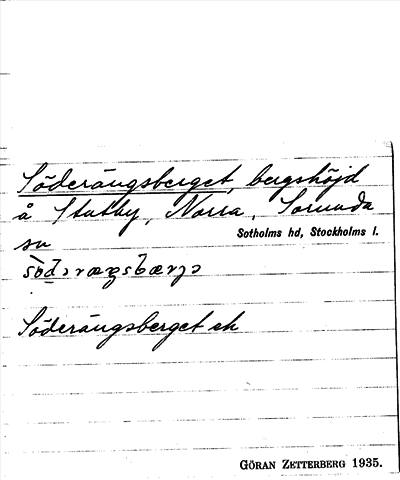 Söderängsberget, bergshöjd
å Stutby, Norra, Sorunda
sn
Sotholms hd, Stockholms l.
Söderängsberget ek
GÖRAN ZETTERBERG 1935.